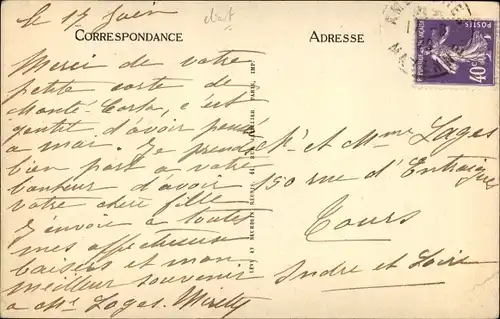 le 17 Juin
CORRESPONDANCE
Merci de votre
petite carte de
Monte-Carlo, c'est
gentil d'avoir pensé
à moi. Je prends
bien part à votre
bonheur d'avoir
votre chère fille
J'envoie à toutes
mes affectueux
baisers et mon
meilleur souvenir
à Mr Lages. Mirelly
LEVY ET NEURDEIN REUNIS, 44, RUE LETELLIER PARIS, IMP.
ADRESSE
POSTES
40c
Mr et Mme Lages
150 rue d'Entraigues
Tours
Indre et Loire